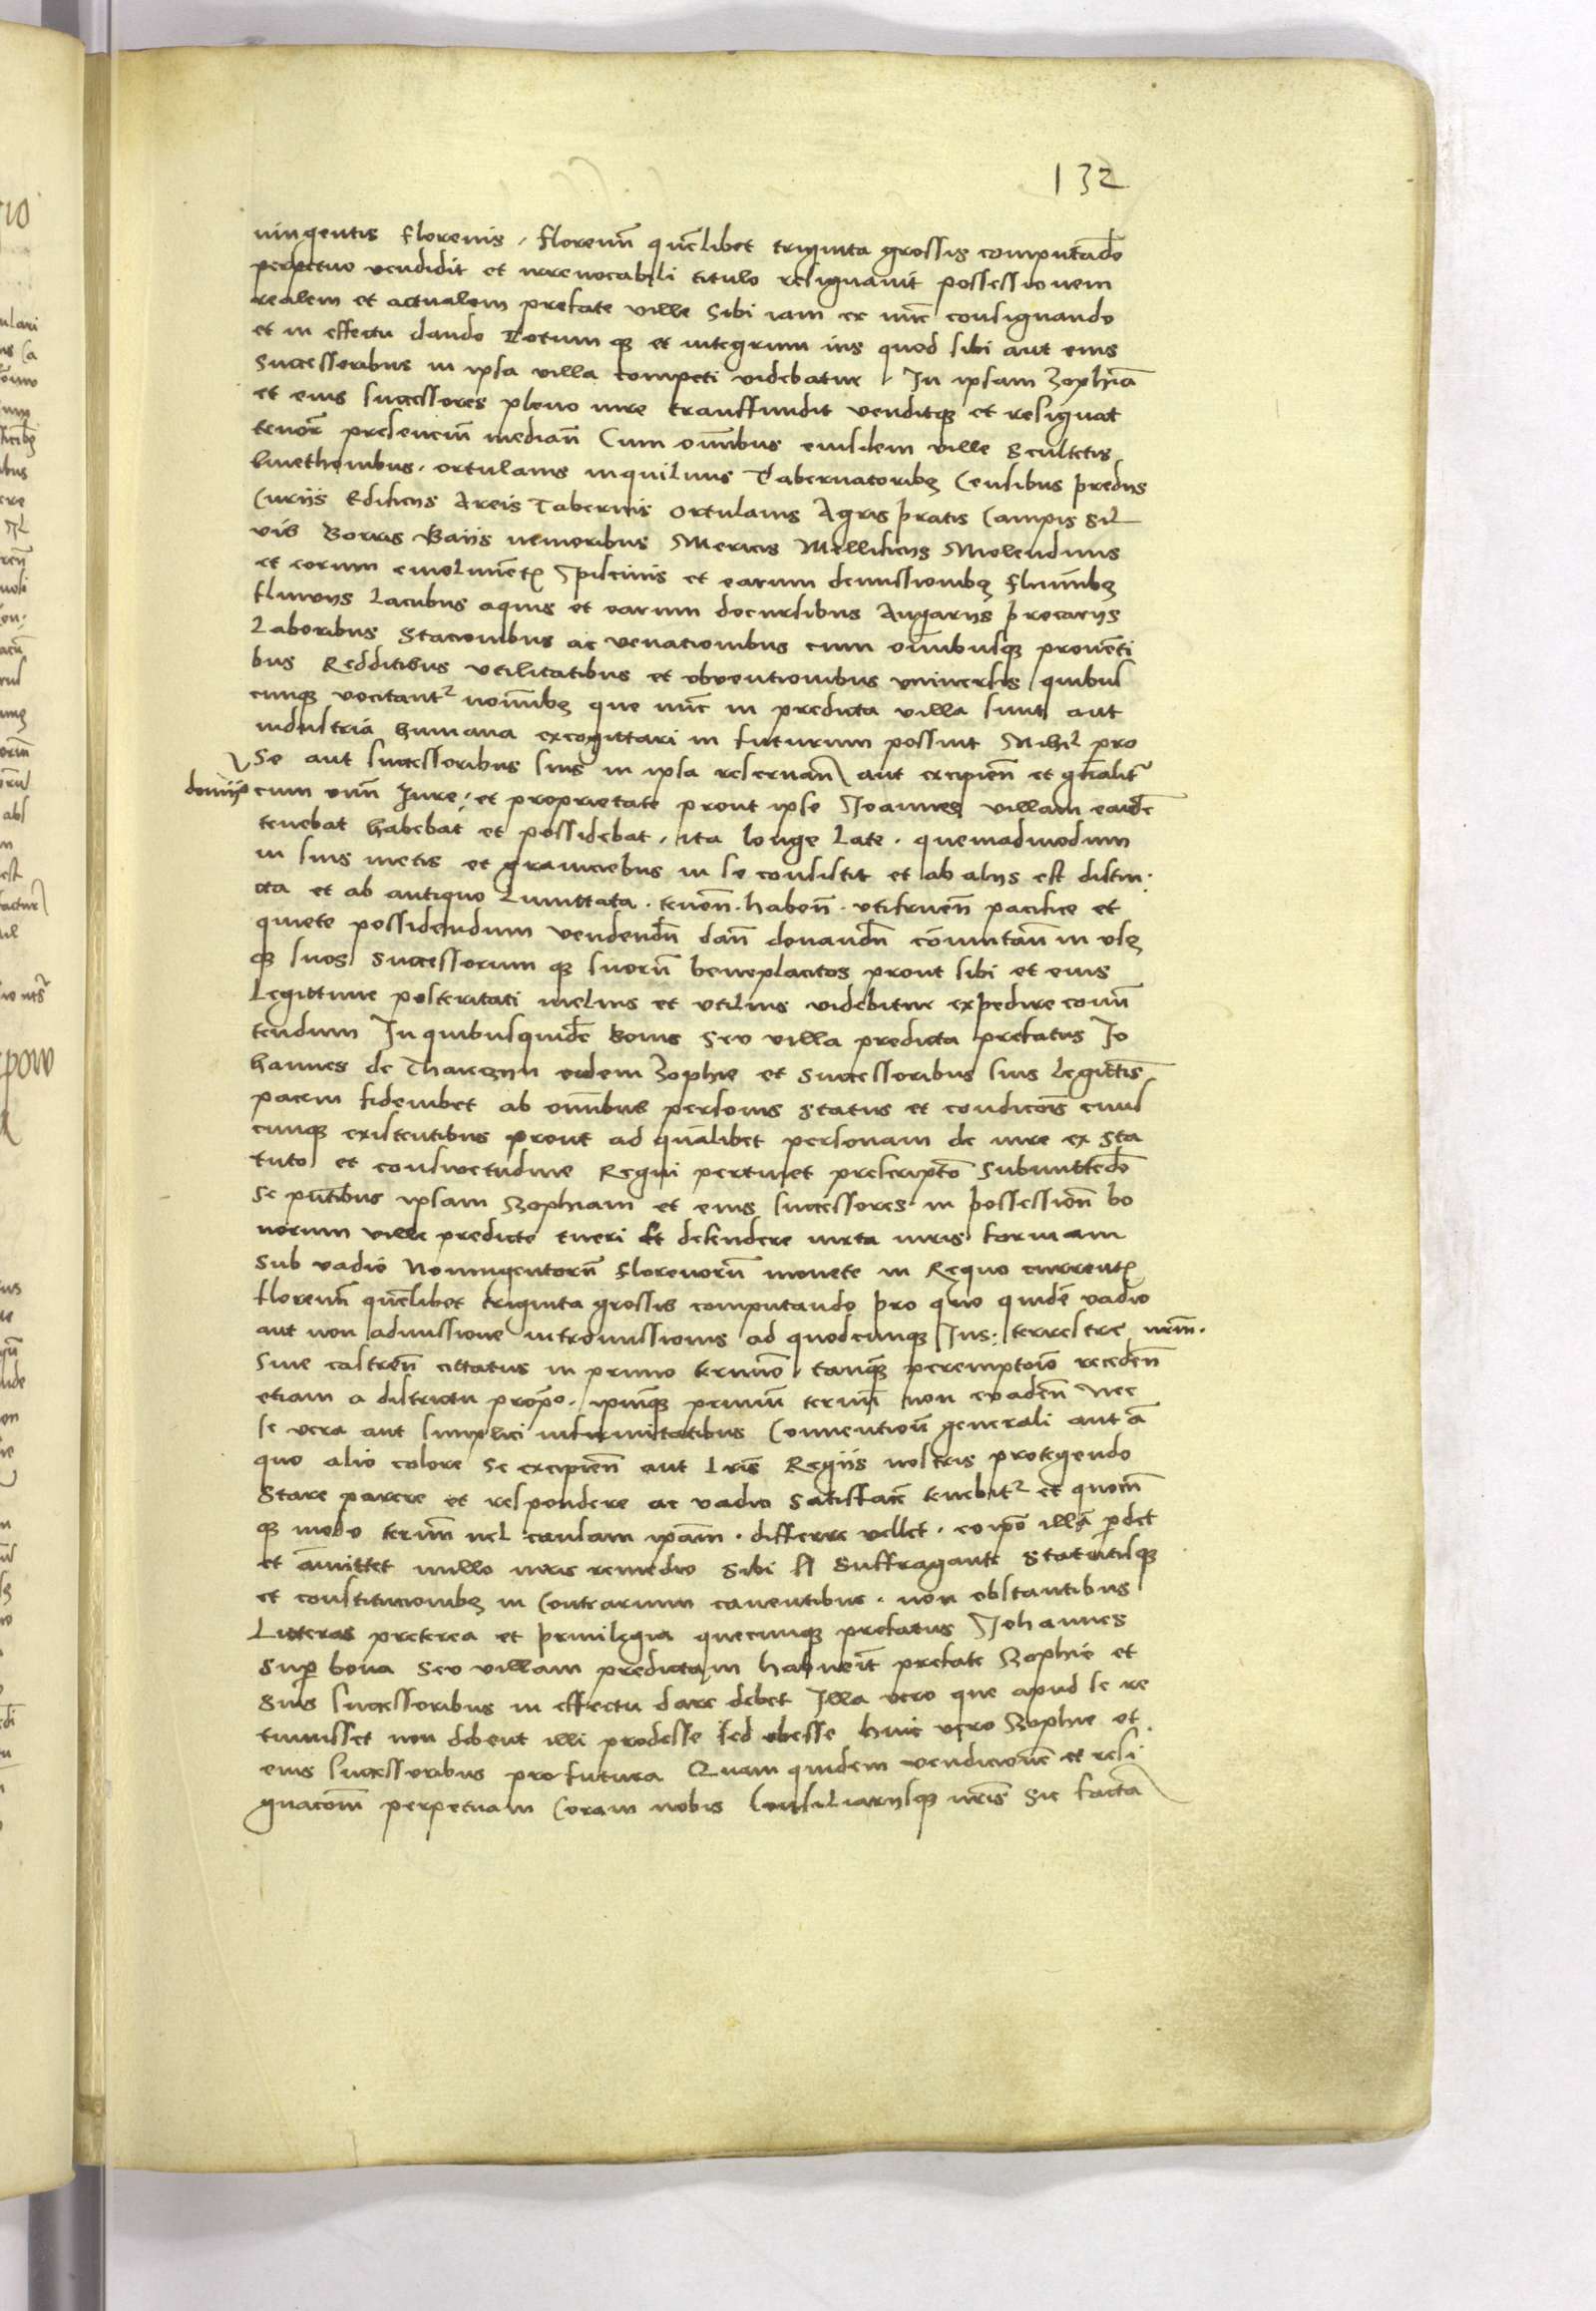 132
uingentis florenis, florenũ quẽlibet triginta grossis computãdo
perpetuo vendidit et irreuocabili titulo resignauit possessionem
realem et actualem prefate ville sibi iam ex nũc consignando
et in effectu dando Totum q₃ et integrum ius quod sibi aut eius
successoribus in ipsa villa competi videbatur, In ipsam Zophiã
et eius successores pleno iure transfundit venditq₃ et resignat
tenorẽ presencium mediañ Cum oĩnibus eiusdem ville Scultetis
kmethonibus, ortulanis inquilinis Tabernatorib₃ Censibus predijs
Curijs Edificijs Areis Tabernis ortulanis Agris pratis Campis Sil
uis Borris Gaijs nemoribus Mericis Mellificijs Molendinis
et eorum emolumẽt₃ piscinis et earum demissionib₃ flumĩb₃
fluuijs Lacubus aquis et earum decursibus Angarijs precarijs
Laboribus Stacionibus ac venacionibus cum oĩnibusq₃ prouẽti
bus Redditibus vtilitatibus et obuentionibus vniuersis quibus
cunq₃ vocitantr nomĩb₃ que nũc in predicta villa sunt aut
industria humana excogittari in futurum possint Nihil pro
Se aut successoribus suis in ipsa reseruañ aut excipieñ et gñalitr
dominijo cum omñ Iure, et proprietate prout ipse Joannes villam eandẽ
tenebat habebat et possidebat, ita longe late, quemadmodum
in suis metis et graniciebus in se consistit et ab alijs est distin
cta et ab antiquo Limittata, teneñ. habeñ. vtifrueñ pacifice et
quiete possidendum vendendũ dañ donandũ cõmutañ in vsq₃
q₃ suos Successorum q₃ suorũ beneplacitos prout sibi et eius
Legittime posteritati melius et vtilius videbitur expedire conũ
tendum In quibusquidẽ bonis Seu villa predicta prefatus Jo
hannes de Tharczyn eidem Zophie et Successoribus suis Legittĩs
pacem fidemũbet ab oĩnibus personis status et condicõis cuius
cunq₃ existentibus prout ad quãlibet personam de iure ex sta
tuto et consuetudine Regni pertinet prescriptõ Submittẽdo
Se pñtibus ipsam Zophiam et eius successores in possessionẽ bo
norum ville predicte tueri Et defendere iuxta iuris formam
Sub vadio Noningentorũ florenorũ monete in Regno current₃
florenũ quẽlibet triginta grossis computando pro quo quidẽ vadio
aut non admissione intromissionis ad quodcunq₃ Ius, terrestre nrm̃.
Siue castreñ cittatus in primo termino, tanquã peremptorio recedeñ
etiam a districtu propo. ipmq₃ primũ termiñ non euadeñ Nec
se vera aut simplici infirmitatibus Conuentionũ generali aut ã
quo alio colore se excipieñ aut Lrĩs Regijs nostris protegendo
Stare parere et respondere ac vadio satisfacẽ tenebitr et quom̃
q₃ modo termĩ uel causam ipam̃. differre vellet, eo ipo illã pdet
et amittet nullo iuris remedio sibi Suffragante Statutisq₃
et constitucionib₃ in Contrarium cauentibus, non obstantibus
Litteras preterea et priuilegia quecunq₃ prefatus Johannes
Sup bona Seu villam predictam habuerit prefate Zophie et
Suis successoribus in effectu dare debet Illa vero que apud se re
tinuisset non debent illi prodesse sed obesse huic vero Zophie et
eius successoribus profutura Quam quidem vendicionẽ et resi
gnacõm perpetuam Coram nobis Consiliarijsq₃ nrĩs Sic factã